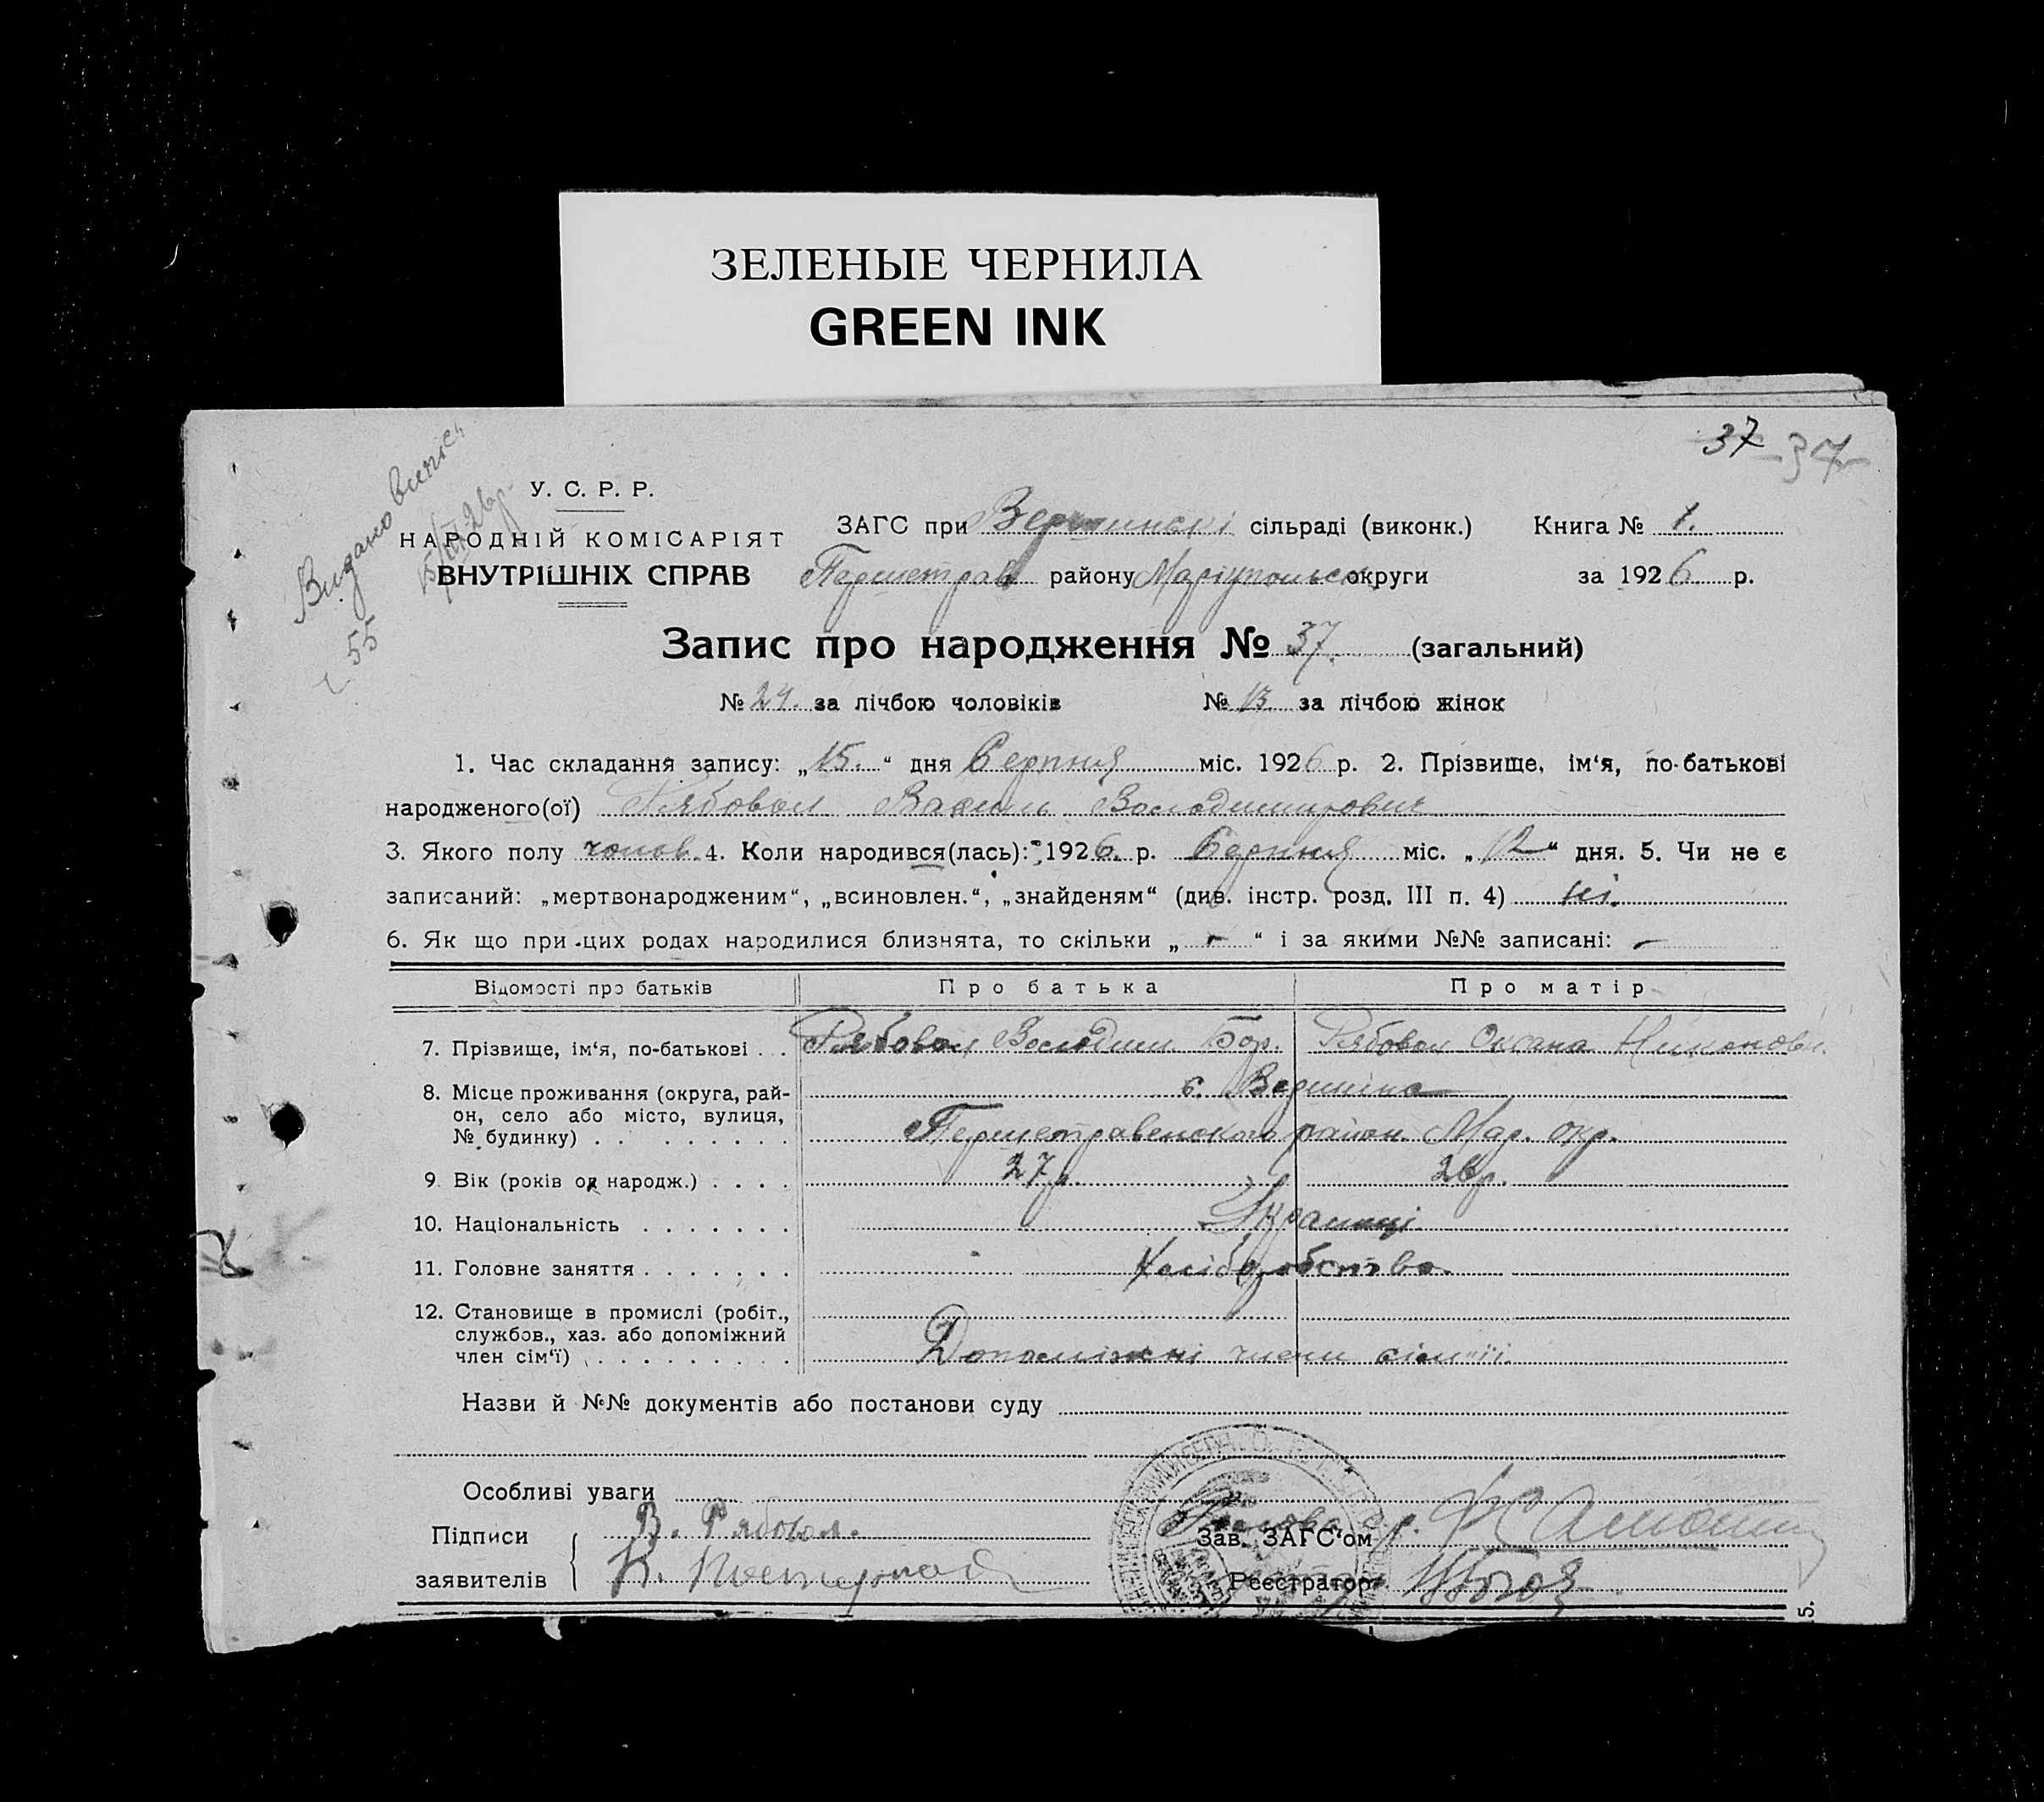 ЗЕЛЕНЫЕ ЧЕРНИЛА
GREEN INK
37 37
Видано випис
55
У. С. Р. Р.
НАРОДНІЙ КОМІСАРІЯТ
ВНУТРІШНІХ СПРАВ
ЗАГС при Вершинські сільраді (виконк.) Книга № 1.
Першетрав району Маріупольськ округи за 1926 р.
Запис про народження № 37. (загальний)
№ 24. за лічбою чоловіків № 13. за лічбою жінок
1. Час складання запису: „15.“ дня Серпня міс. 1926 р. 2. Прізвище, ім‘я, по-батькові
народженого(ої) Рябовол Василь Володимирович
3. Якого полу чолов. 4. Коли народився(лась): 1926. р. Серпня міс. „12“ дня. 5. Чи не є
записаний: „мертвонародженим“, „всиновлен.“, „знайденям“ (див. інстр. розд. III п. 4) ні.
6. Як що при цих родах народилися близнята, то скільки „ - “ і за якими №№ записані: -
Відомості про батьків Про батька Про матір
7. Прізвище, ім‘я, по-батькові . . Рябовол Володим. Бор. Рябовол Оксана Никонов.
8. Місце проживання (округа, рай-
он, село або місто, вулиця,
№ будинку) . . . . . . . . с. Вершина
Першетравенского район. Мар. окр.
9. Вік (років од народж.) . . . . 27 р. 26 р.
10. Національність . . . . . . . Українці
11. Головне заняття . . . . . . . Хліборобство.
12. Становище в промислі (робіт.,
службов., хаз. або допоміжний
член сім‘ї) . . . . . . . . . Допоміжні члени сімії.
Назви й №№ документів або постанови суду
Особливі уваги
Підписи
заявителів
В. Рябовол.
К.
Голова с/р.
Зав. ЗАГС‘ом
Реєстратор
5.